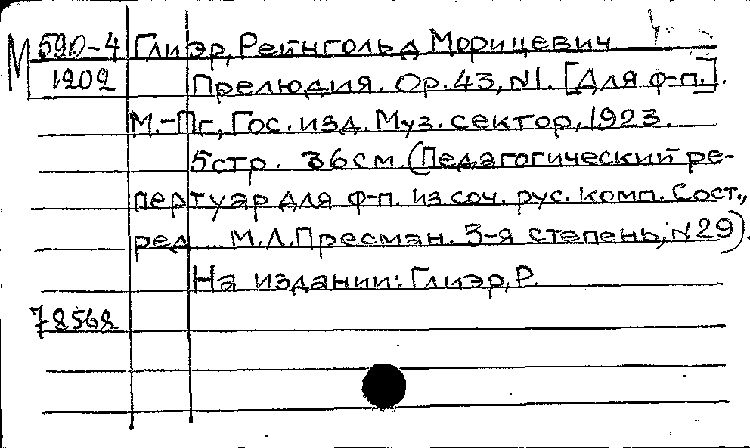 М 590-4 Глиэр, Рейнгольд Морицевич
1202 Прелюдия. Ор.43, N1. [Для ф-п.].
М.-Пг, Гос. изд. Муз. сектор, 1923.
5стр. 36см. (Педагогический ре-
пертуар для ф-п. из соч. рус. комп. Сост.,
ред. М.Л.Пресман. 3-я степень, N29).
На издании: Глиэр, Р.
78568